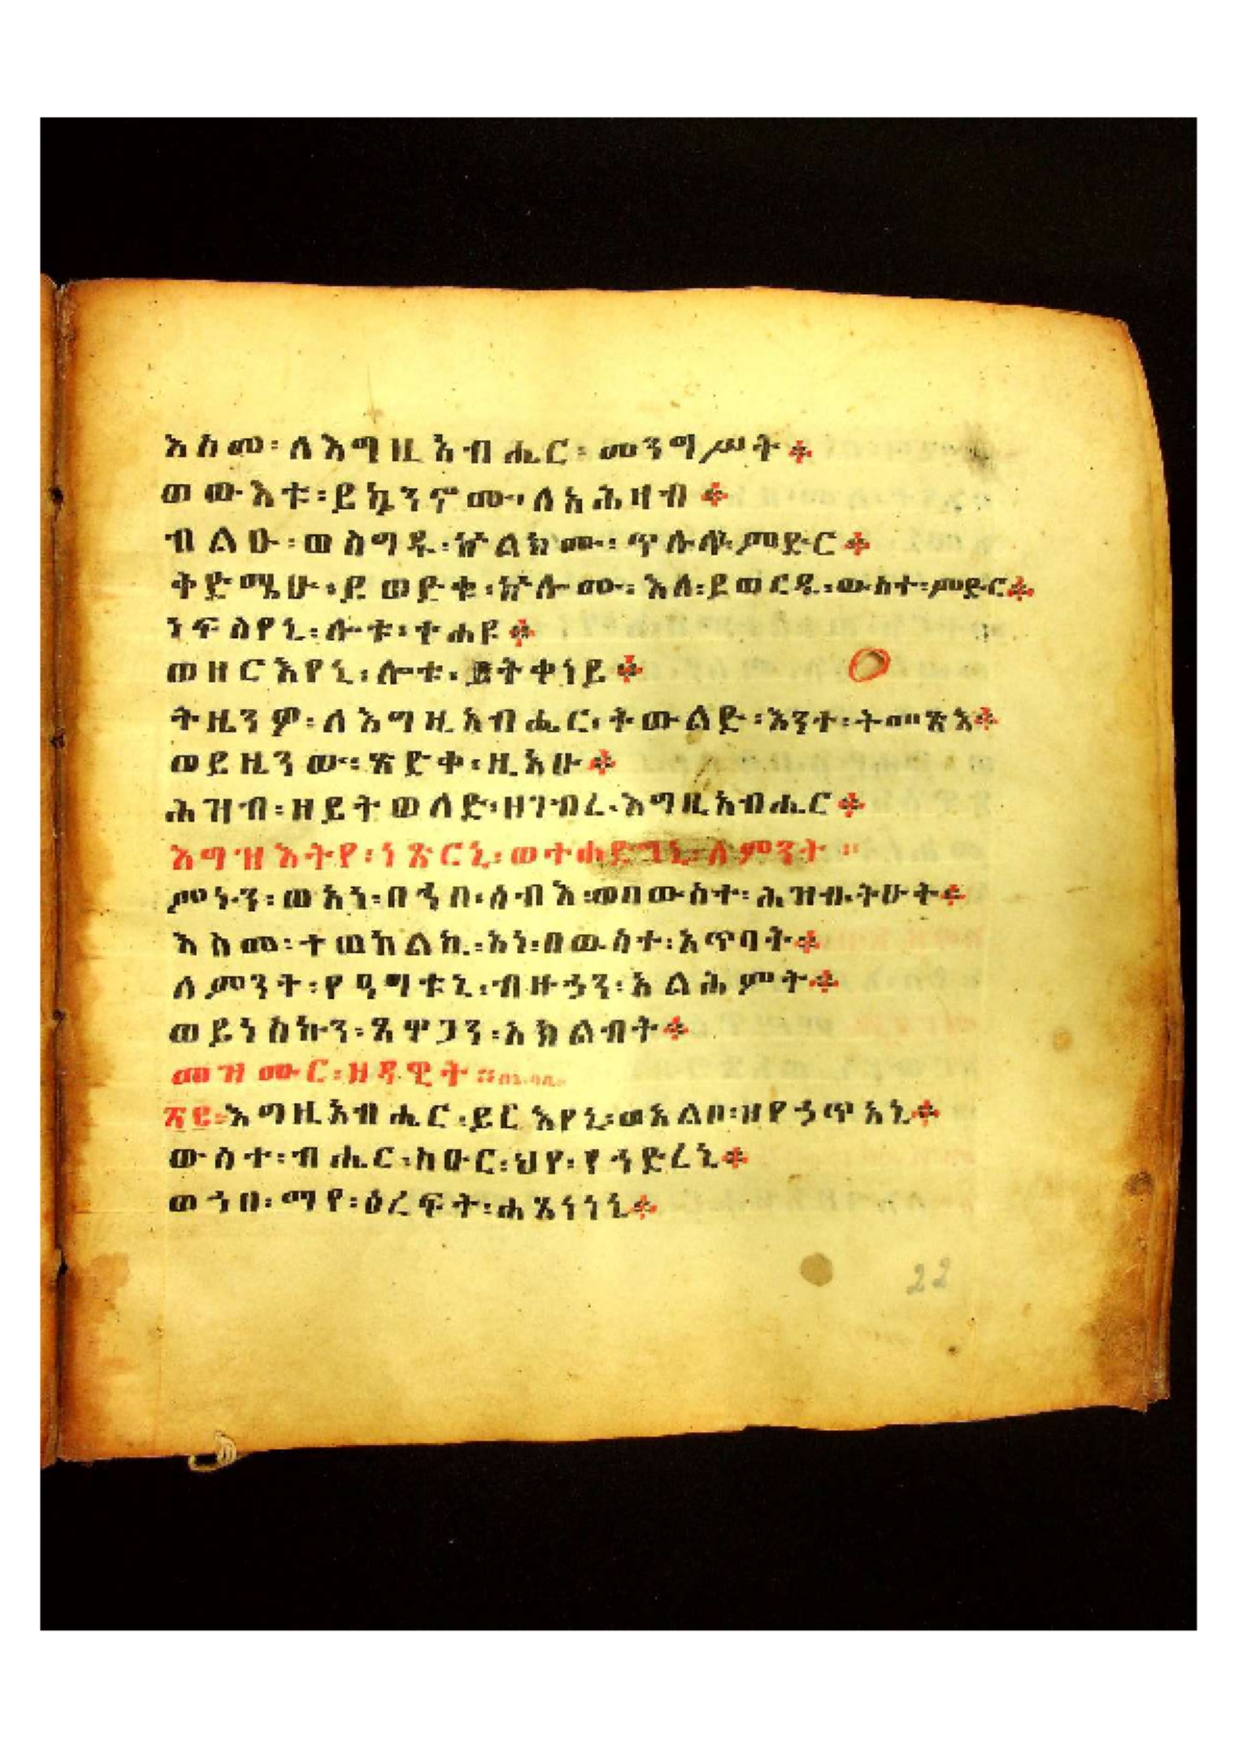 እስመ፡ለእግዚአብሔር፡መንግሥት፨
ወውእቱ፡ይኴንኖሙ፡ለአሕዛብ፨
ብልዑ፡ወስግዱ፡ኵልክሙ፡ጥሉላ፡ምድር፨
ቅድሜሁ፡ይወድቁ፡ኵሎሙ፡እለ፡ይወርዱ፡ውስተ፡ምድር፨
ነፍስየኒ፡ሎቱ፡ተሐዩ፨
ወዘርእየኒ፡ሎቱ፡ይትቀነይ፨
ትዜንዎ፡ለእግዚአብሔር፡ትውልድ፡እንተ፡ትመጽእ፨
ወይዜንው፡ጽድቀ፡ዚአሁ፨
ሕዝብ፡ዘይትወለድ፡ዘገብረ፡እግዚአብሔር፨
እግዝእትየ፡ነጽርኒ፡ወተ ለምንት።
ምነንን፡ወአነ፡በኀበ፡ሰብእ፡ወበውስተ፡ሕዝብ፡ትሁት፨
እስመ፡ተ አነ፡በውስተ፡አጥባት፨
ለምንት፡የዓግቱኒ፡ብዙኃን፡አልሕምት፨
ወይነስኩን፡ጸዋጋን፡አክልብት፨
መዝሙር፡ዘዳዊት።
፳፪፡እግዚአብሔር፡ይርእየኒ፡ወአልቦ፡ዘየኃጥአኒ፨
ውስተ፡ብሔር፡ከዑር፡ህየ፡የኀድረኒ፨
ወኀበ፡ማየ፡ዕረፍት፡ሐፄነነኒ፨
22